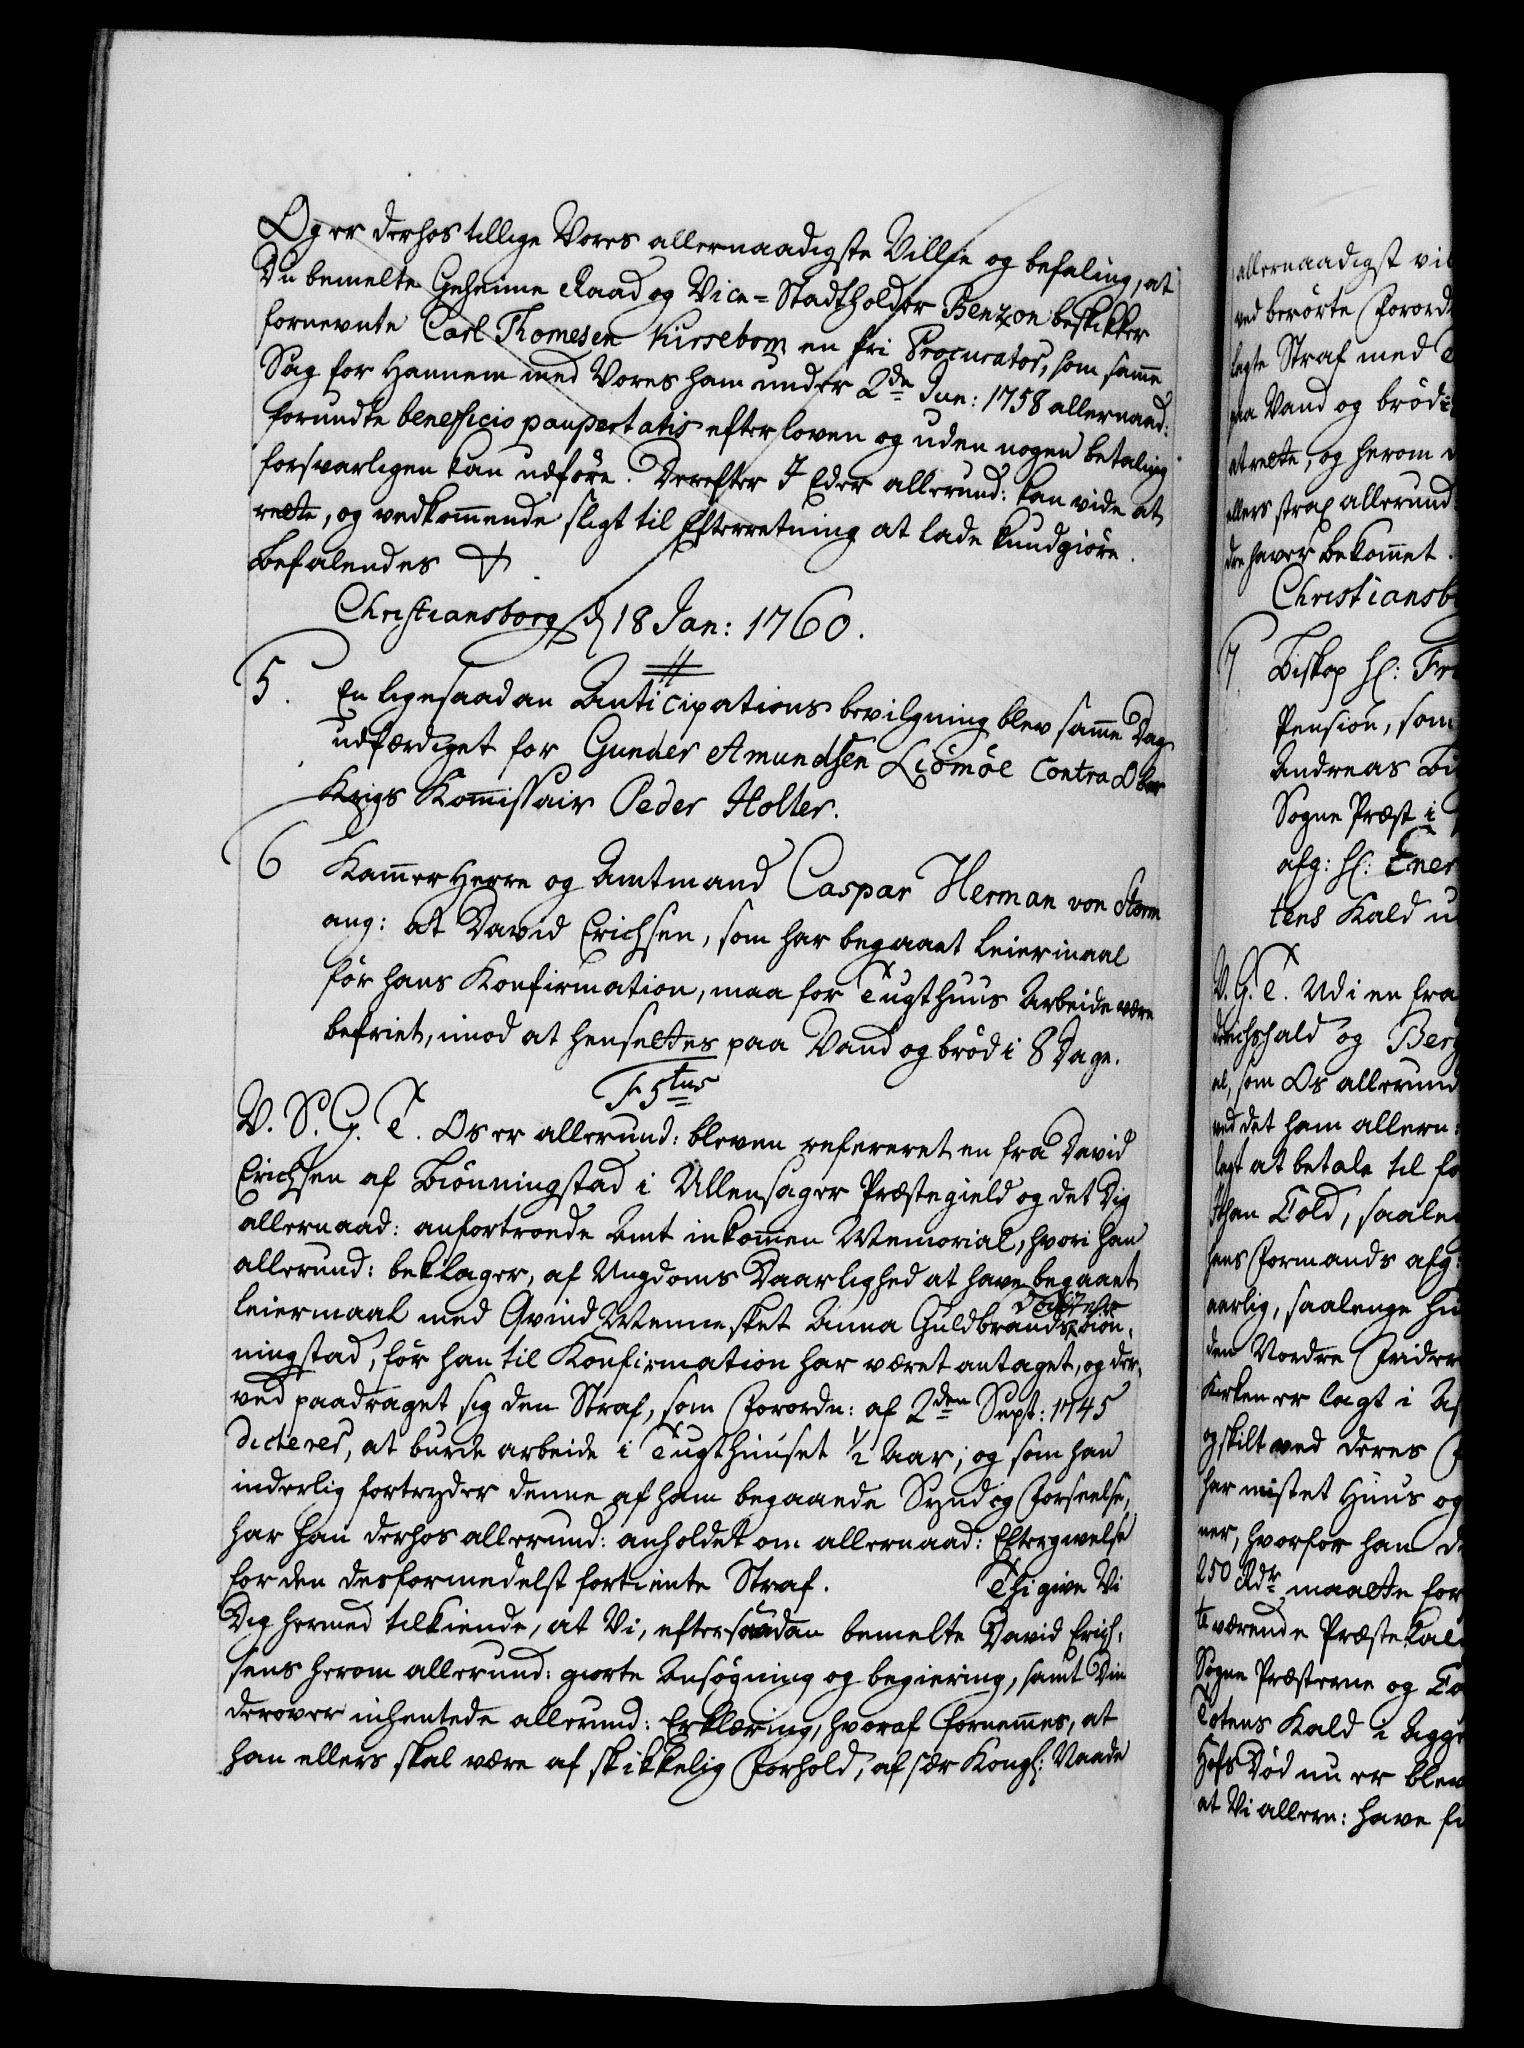 Og er derhos tillige Vores allernaadigste Villie og befaling, at
Du bemelte Geheime Raad og Vice-Stadtholder Benzon beskikker
fornevnte Carl Thomesen Kirsebom en fri Procurator, som samme
Sag for Hannem med Vores ham under 2de Jun: 1758 allernaad:
forundte beneficio paupertatis efter loven og uden nogen betaling
forsvarligen kan udføre. Derefter I Eder allerund: kan vide at
rette, og vedkommende sligt til Efterretning at lade kundgiøre.
Befalendes
Christiansborg d 18 Jan: 1760.
5. En ligesaadan Anticipations bevilgning blev samme Dag
udfærdiget for Gunder Amundsen Liømøe Contra Ober
Krigs Kommissair Peder Holter.
6 Kammer Herre og Amtmand Caspar Herman von Storm
ang: at David Erichsen, som har begaaet Leiermaal
før hans Konfirmation, maa for Tugthuus Arbeide være
befriet, imod at hensettes paa Vand og brød i 8 Dage.
F 5tus
V. S. G. T. Os er allerund: bleven refereret en fra David
Erichsen af Biønningstad i Ullensager Præstegield og det Dig
allernaad: anfortroede Amt inkommen Memorial, hvori han
allerund: beklager, af Ungdoms Daarlighed at have begaaet
Leiermaal med Qvind Mennesket Anna Guldbrands Datter Biøn-
ningstad, før han til Konfirmation har været antaget, og der-
ved paadraget sig den Straf, som Forordn: af 2den Sept: 1745
dicterer, at burde arbeide i Tugthuuset 1/2 Aar; og som han
inderlig fortryder denne af ham begaaede Synd og Forseelse,
har han derhos allerund: anholdet om allernaad: Eftergivelse
for den desformedelst fortiente Straf. Thi give Vi
Dig hermed tilkiende, at Vi, eftersaadan bemelte David Erich-
sens herom allerund: giorte Ansøgning og begiering, samt Din
derover inhentede allerund: Erklæring, hvoraf fornemmes, at
han ellers skal være af skikkelig Forhold, af sær Kongl: Naade
allernaadigst vil
ved berørte Forord
lagte Straf med
paa Vand og brød i
at rette, og herom
ellers strax allerund
haver bekommet.
Christiansb
7. Biskop Hr: Fr
Pension, som
Andreas Bu
Sogne Præst i
afg: Hr: Ener
tens Kald u
V. G. T. Ud i en fra
drichshald og Berg
el, som Os allerund
ved det ham allern:
lagt at betale til fo
than Told, saaleg
hans Formands afg:
aarlig, saalenge hu
den Nordre Frider
Kirken er lagt i As
og skilt ved deres
har mistet Huus og
ner, hvorfor han d
250 Rdr, maatte for
te værende Præste Kal
Sogne Præsterne og To
Totens Kald i Agge
Hofs Død nu er blev
at Vi allern: have fu